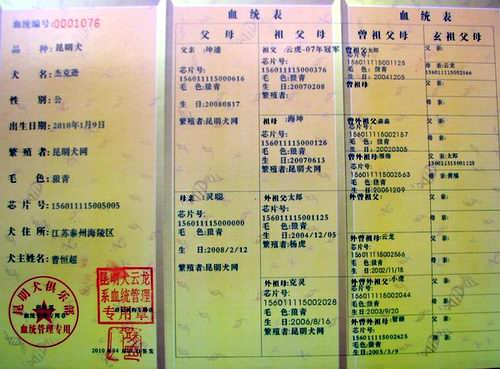 血统编号:0001076
品 种:昆明犬
犬 名:杰克逊
性 别:公
出生日期:2010年1月9日
繁殖者:昆明犬网
毛 色:狼青
芯片号:156011115005005
犬住所:江苏泰州海陵区
犬主姓名:曹恒超
昆明犬俱乐部
血统管理专用
昆明犬云龙
系血统管理
专用章
血统表
父母
父亲:坤通
芯片号:
156011115000616
毛 色:狼青
生 日:20080817
繁殖者:昆明犬网
母亲:灵聪
芯片号:
156011115000000
毛 色:狼青
生 日:2008/2/12
繁殖者:昆明犬网
祖父母
祖父:云虎-07年冠军
芯片号:
156011115000376
毛 色:狼青
生 日:20070208
繁殖者:
祖母:海坤
芯片号:
156011115000126
毛 色:狼青
生 日:20070613
繁殖者:昆明犬网
外祖父
芯片号:
156011115001125
毛 色:狼青
生 日:2004/12/05
繁殖者:杨虎
外祖母:宛灵
1560111115002028
毛 色:狼青
生 日:2006/8/16
繁殖者:昆明犬网
血统表
曾祖父母
曾祖父太郎
芯片号:
156011115001125
毛 色:狼青
生 日:20041205
曾祖母
曾外祖父
芯片号:
156011115002157
毛 色:狼青
生 日:20020305
曾外祖母
芯片号:
156011115002563
毛 色:狼青
生 日:20051209
外曾祖父:
外曾祖母:云龙
芯片号:
156011115002566
毛 色:狼青
生 日:2002/11/18
曾外祖父:小虎
芯片号:
156011115002044
毛 色:狼青
生 日:2003/9/20
曾外祖母:智丽
芯片号:
156011115002625
毛 色:狼青
生 日:2005/3/9
玄祖父母
父亲:
母亲:
父亲:云龙
156011115002566
母亲:
父亲:
母亲:
父亲:太郎
156011115001125
母亲:黄福
父亲:
母亲:
父亲:
母亲:
父亲:
母亲:
父亲:
母亲: